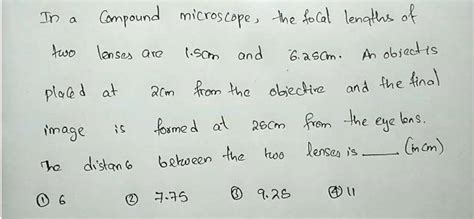 In a Compound microscope, the focal lengths of
two lenses are 1.5cm and 6.25cm. An object is
placed at 2cm from the objective and the final
image is formed at 25cm from the eye lens.
The distance between the two lenses is ____ (in cm)
① 6 ② 7.75 ③ 9.25 ④ 11